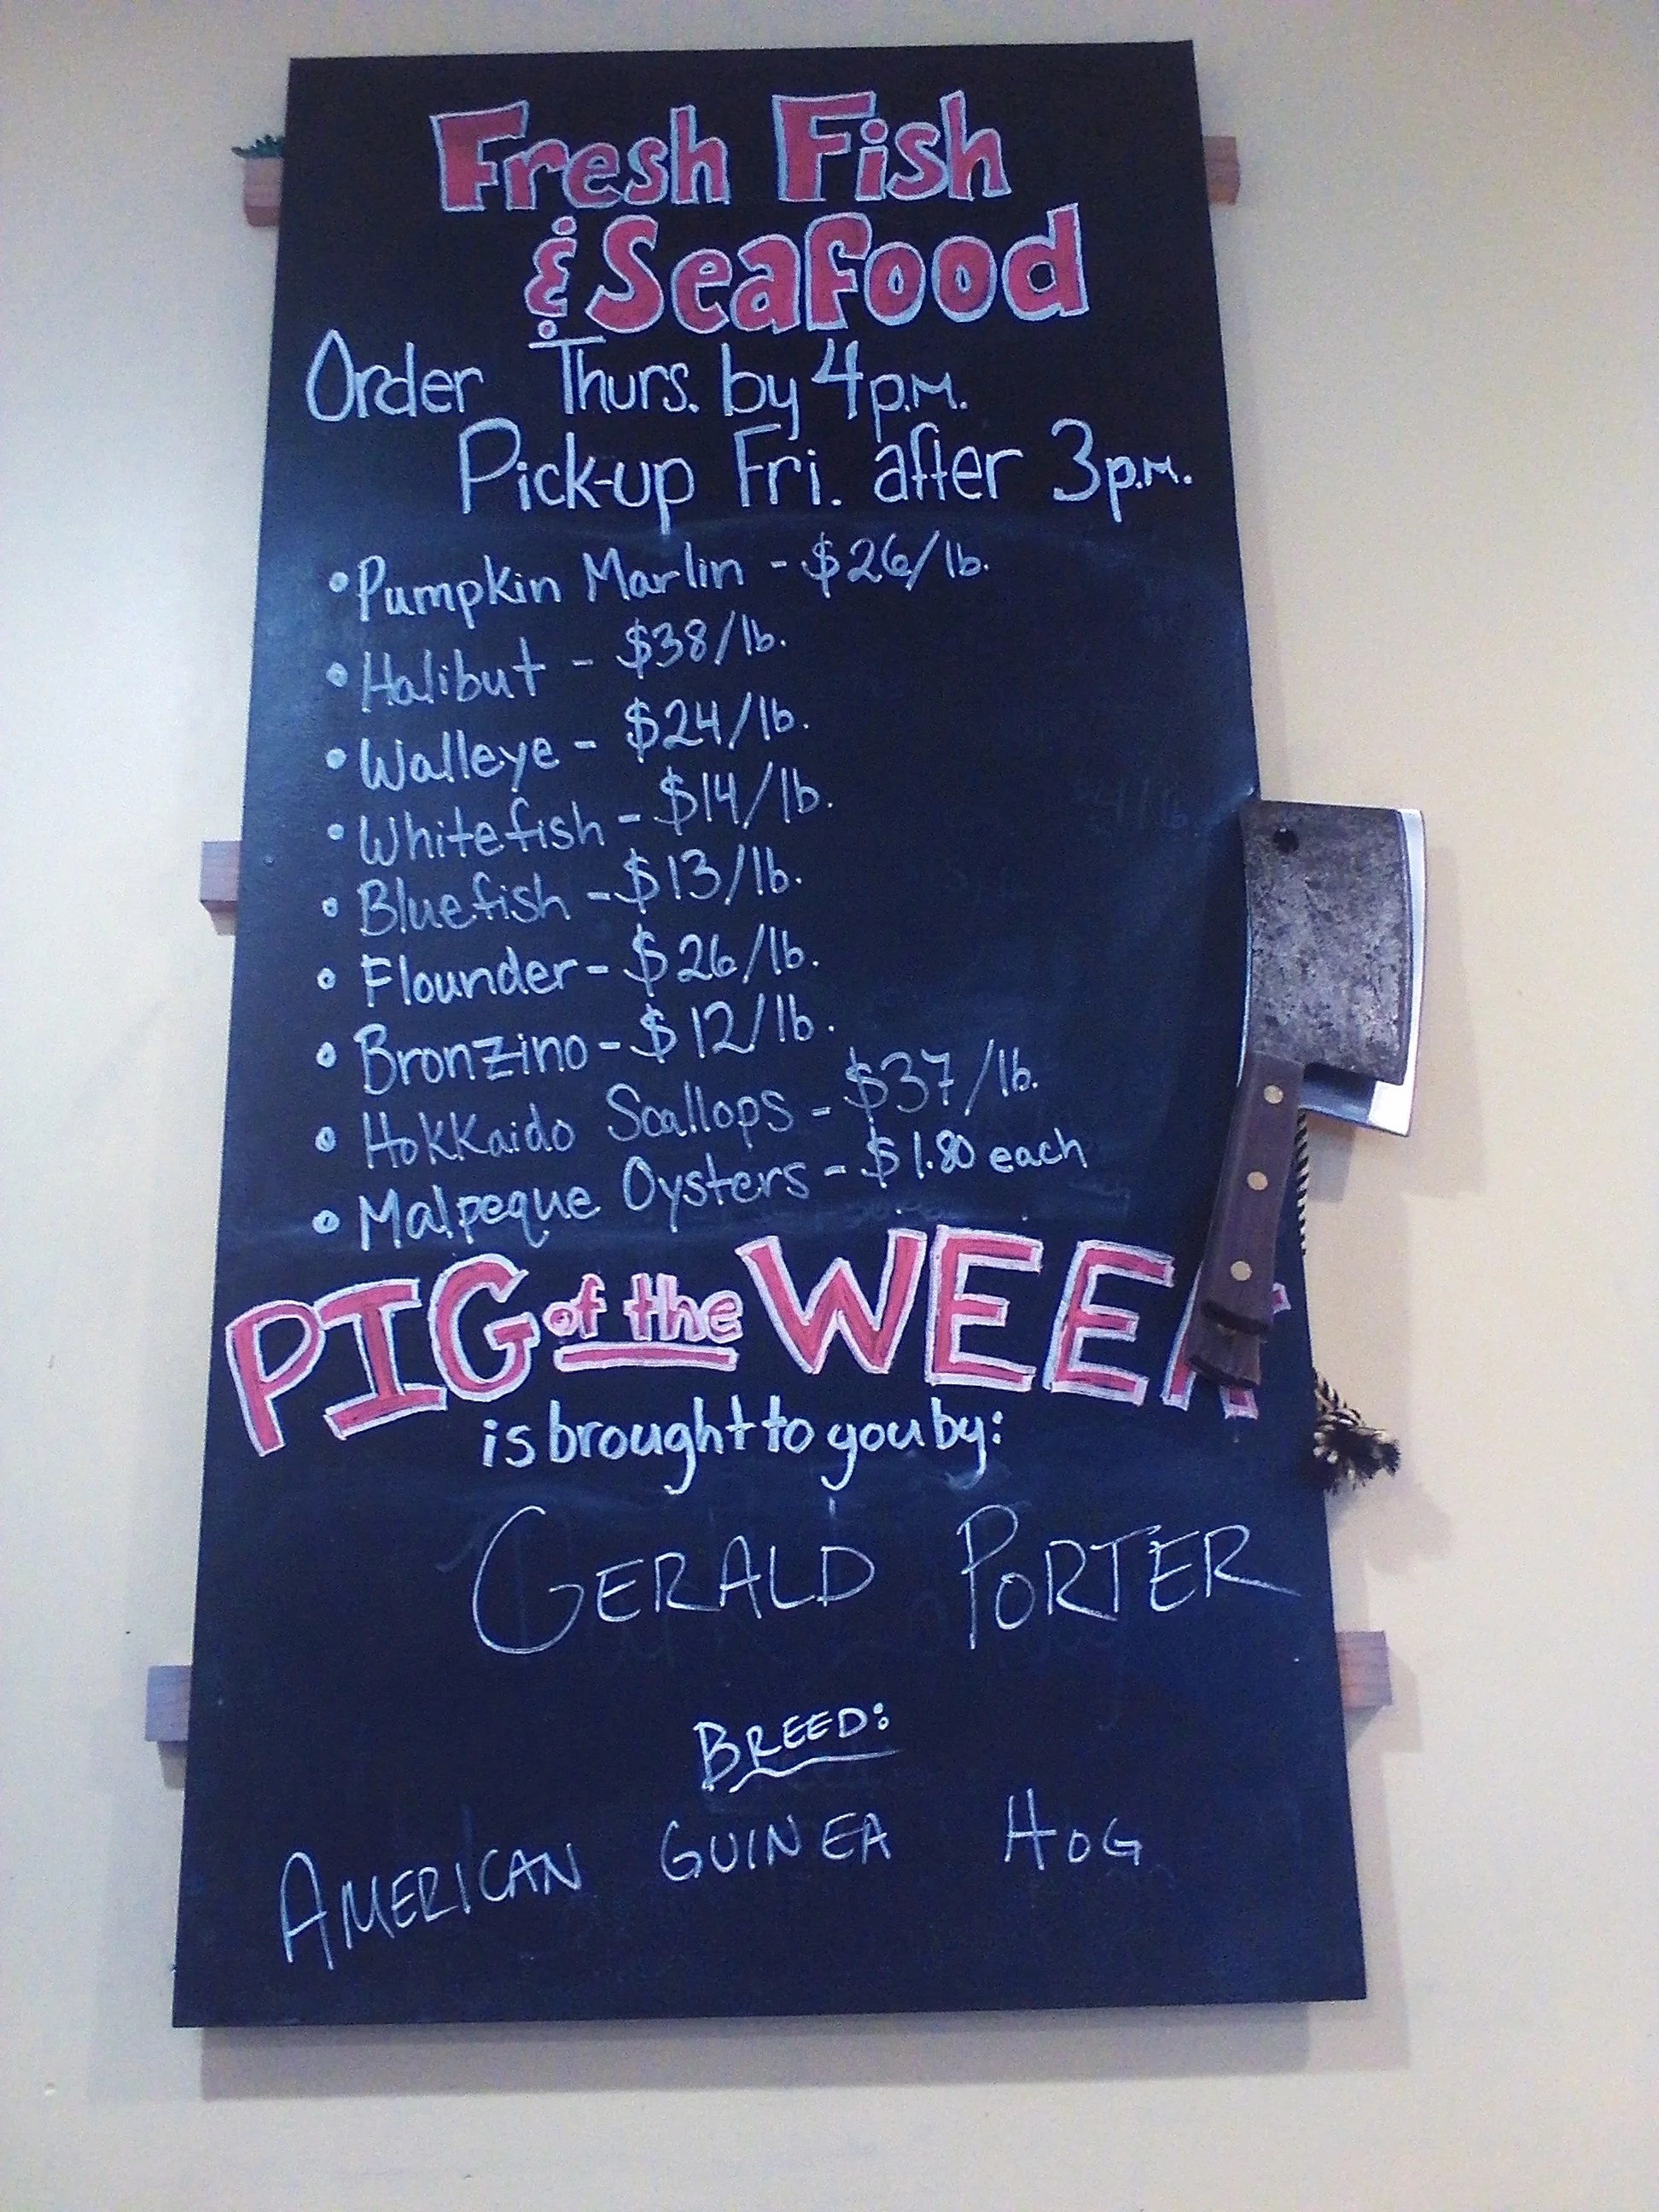 Fresh Fish
& Seafood
Order Thurs. by 4 p.m.
Pick-up Fri. after 3 p.m.
• Pumpkin Marlin - $26/lb.
• Halibut - $38/lb.
• Walleye - $24/lb.
• Whitefish - $14/lb.
• Bluefish - $13/lb.
• Flounder - $26/lb.
• Bronzino - $12/lb.
• Hokkaido Scallops - $37/lb.
• Malpeque Oysters - $1.80 each
PIG of the WEEK
is brought to you by:
GERALD PORTER
BREED:
AMERICAN GUINEA HOG